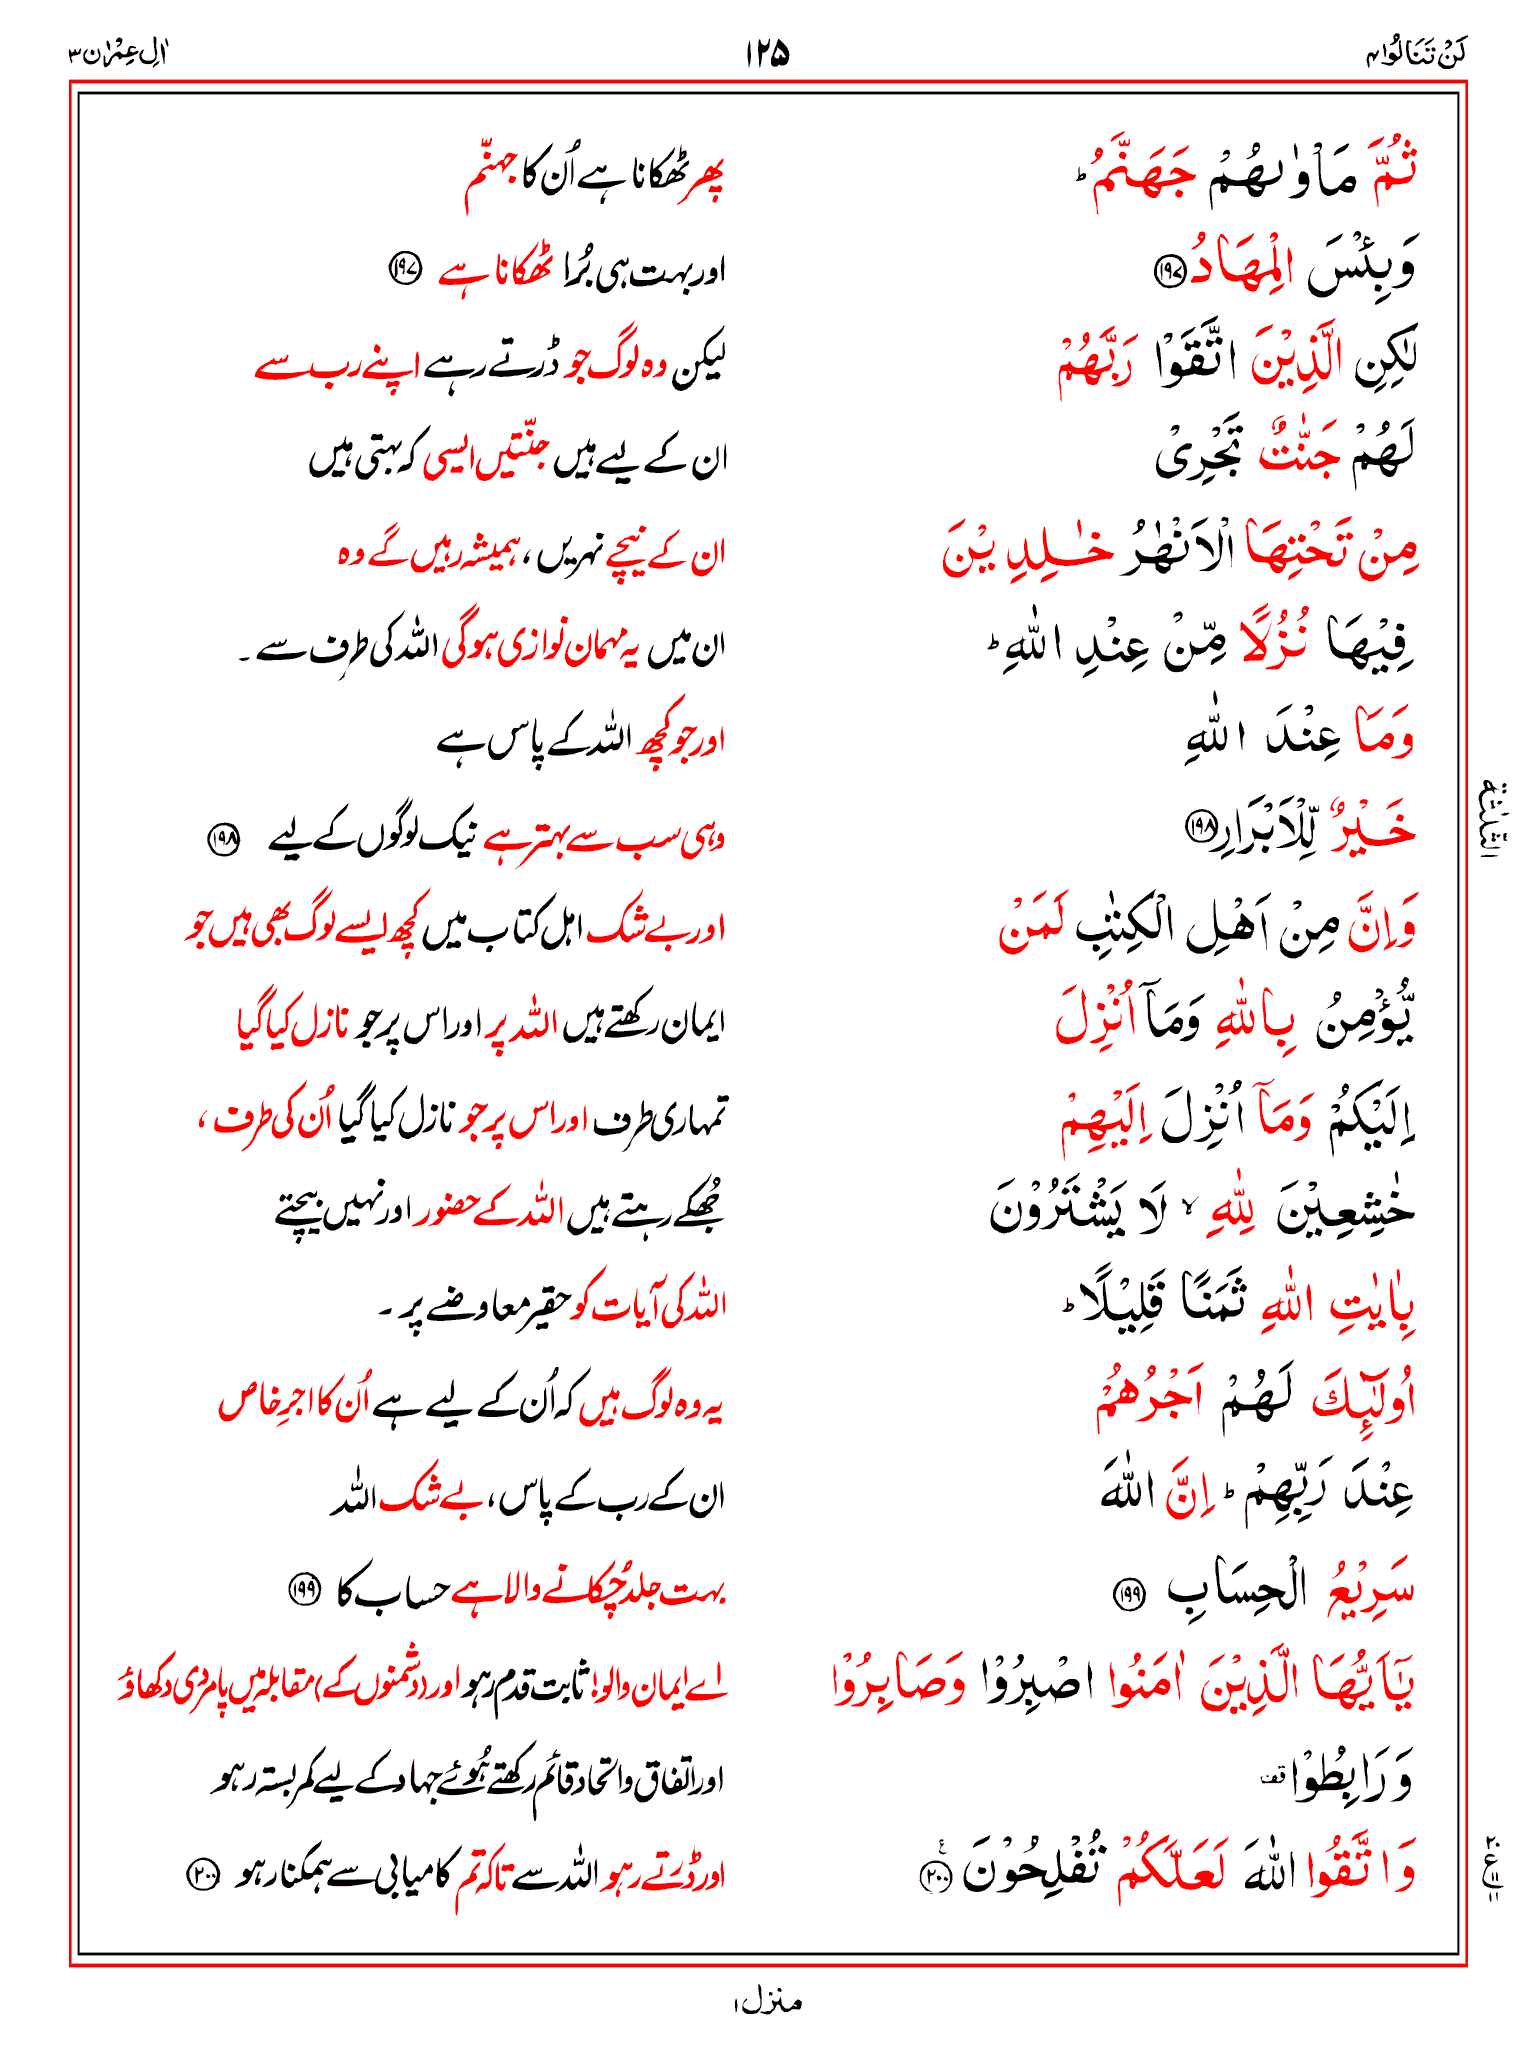 لَنْ تَنَالُوا ۴ ۱۲۵ اٰلِ عِمْرٰن ۳
ثُمَّ مَاْوٰىهُمْ جَهَنَّمُ ؕ پھر ٹھکانا ہے اُن کا جہنّم
وَبِئْسَ الْمِهَادُ ﴿۱۹۷﴾ اور بہت ہی بُرا ٹھکانا ہے ﴿۱۹۷﴾
لٰكِنِ الَّذِيْنَ اتَّقَوْا رَبَّهُمْ لیکن وہ لوگ جو ڈرتے رہے اپنے رب سے
لَهُمْ جَنّٰتٌ تَجْرِىْ ان کے لیے ہیں جنّتیں ایسی کہ بہتی ہیں
مِنْ تَحْتِهَا الْاَنْهٰرُ خٰلِدِيْنَ ان کے نیچے نہریں، ہمیشہ رہیں گے وہ
فِيْهَا نُزُلًا مِّنْ عِنْدِ اللّٰهِ ؕ ان میں یہ مہمان نوازی ہوگی اللہ کی طرف سے۔
وَمَا عِنْدَ اللّٰهِ اور جو کچھ اللہ کے پاس ہے
خَيْرٌ لِّلْاَبْرَارِ ﴿۱۹۸﴾ وہی سب سے بہتر ہے نیک لوگوں کے لیے ﴿۱۹۸﴾
الثلٰثة
وَاِنَّ مِنْ اَهْلِ الْكِتٰبِ لَمَنْ اور بے شک اہل کتاب میں کچھ ایسے لوگ بھی ہیں جو
يُّؤْمِنُ بِاللّٰهِ وَمَآ اُنْزِلَ ایمان رکھتے ہیں اللہ پر اور اس پر جو نازل کیا گیا
اِلَيْكُمْ وَمَآ اُنْزِلَ اِلَيْهِمْ تمہاری طرف اور اس پر جو نازل کیا گیا اُن کی طرف،
خٰشِعِيْنَ لِلّٰهِ ۙ لَا يَشْتَرُوْنَ جُھکے رہتے ہیں اللہ کے حضور اور نہیں بیچتے
بِاٰيٰتِ اللّٰهِ ثَمَنًا قَلِيْلًا ؕ اللہ کی آیات کو حقیر معاوضے پر۔
اُولٰٓئِكَ لَهُمْ اَجْرُهُمْ یہ وہ لوگ ہیں کہ اُن کے لیے ہے اُن کا اجرِ خاص
عِنْدَ رَبِّهِمْ ؕ اِنَّ اللّٰهَ ان کے رب کے پاس، بے شک اللہ
سَرِيْعُ الْحِسَابِ ﴿۱۹۹﴾ بہت جلد چُکانے والا ہے حساب کا ﴿۱۹۹﴾
يٰٓاَيُّهَا الَّذِيْنَ اٰمَنُوا اصْبِرُوْا وَصَابِرُوْا اے ایمان والو! ثابت قدم رہو اور (دشمنوں کے) مقابلہ میں پامردی دکھاؤ
وَرَابِطُوْا قف اور اتفاق و اتحاد قائم رکھتے ہُوئے جہاد کے لیے کمربستہ رہو
وَاتَّقُوا اللّٰهَ لَعَلَّكُمْ تُفْلِحُوْنَ ﴿۲۰۰﴾ اور ڈرتے رہو اللہ سے تاکہ تم کامیابی سے ہمکنار رہو ﴿۲۰۰﴾
۲۰ ع ۱۱
منزل ۱